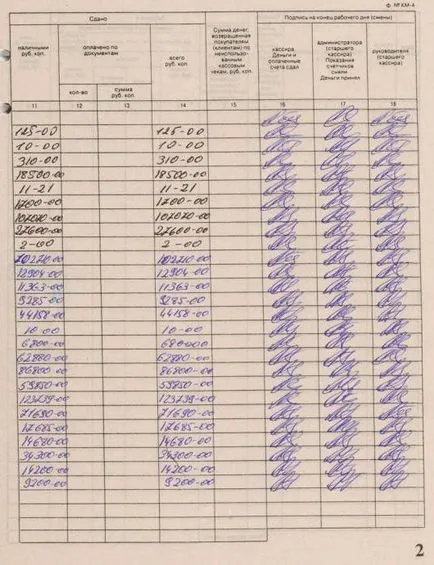 Ф. № КМ-4
Сдано
Сумма денег, возвращенная покупателям (клиентам) по неиспользованным кассовым чекам, руб. коп.
Подпись на конец рабочего дня (смены)
наличными руб. коп.
оплачено по документам
всего руб. коп.
кассира Деньги и оплаченные счета сдал
администратора (старшего кассира) Показания счетчиков снял Деньги принял
руководителя (старшего кассира)
кол-во
сумма руб. коп.
11 12 13 14 15 16 17 18
125-00 125-00
10-00 10-00
310-00 310-00
18500-00 18500-00
11-21 11-21
1700-00 1700-00
107070-00 107070-00
27600-00 27600-00
2-00 2-00
102710-00
12904-00 12904-00
11363-00 11363-00
9285-00 9285-00
44158-00 44158-00
10-00 10-00
6800-00 680000
62880-00 62880-00
86800-00 86800-00
59850-00 59850-00
123739-00 123739-00
71690-00 71690-00
17685-00 17685-00
14680-00 14680-00
34300-00
14200-00 14200-00
9200-00 9200-00
2